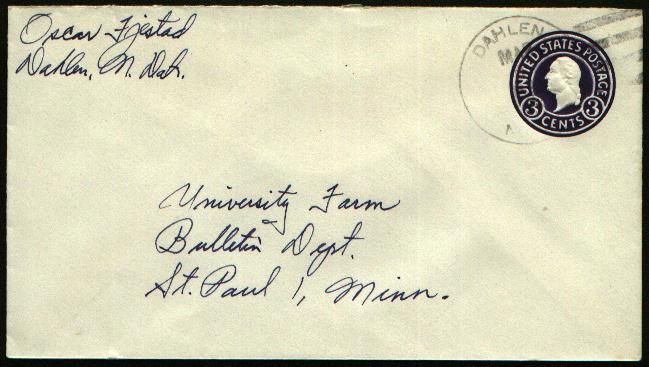 Oscar Fjestad
Dahlen, N. Dak.
DAHLEN
UNITED STATES POSTAGE
3 CENTS 3
University Farm
Bulletin Dept.
St. Paul 1, Minn.